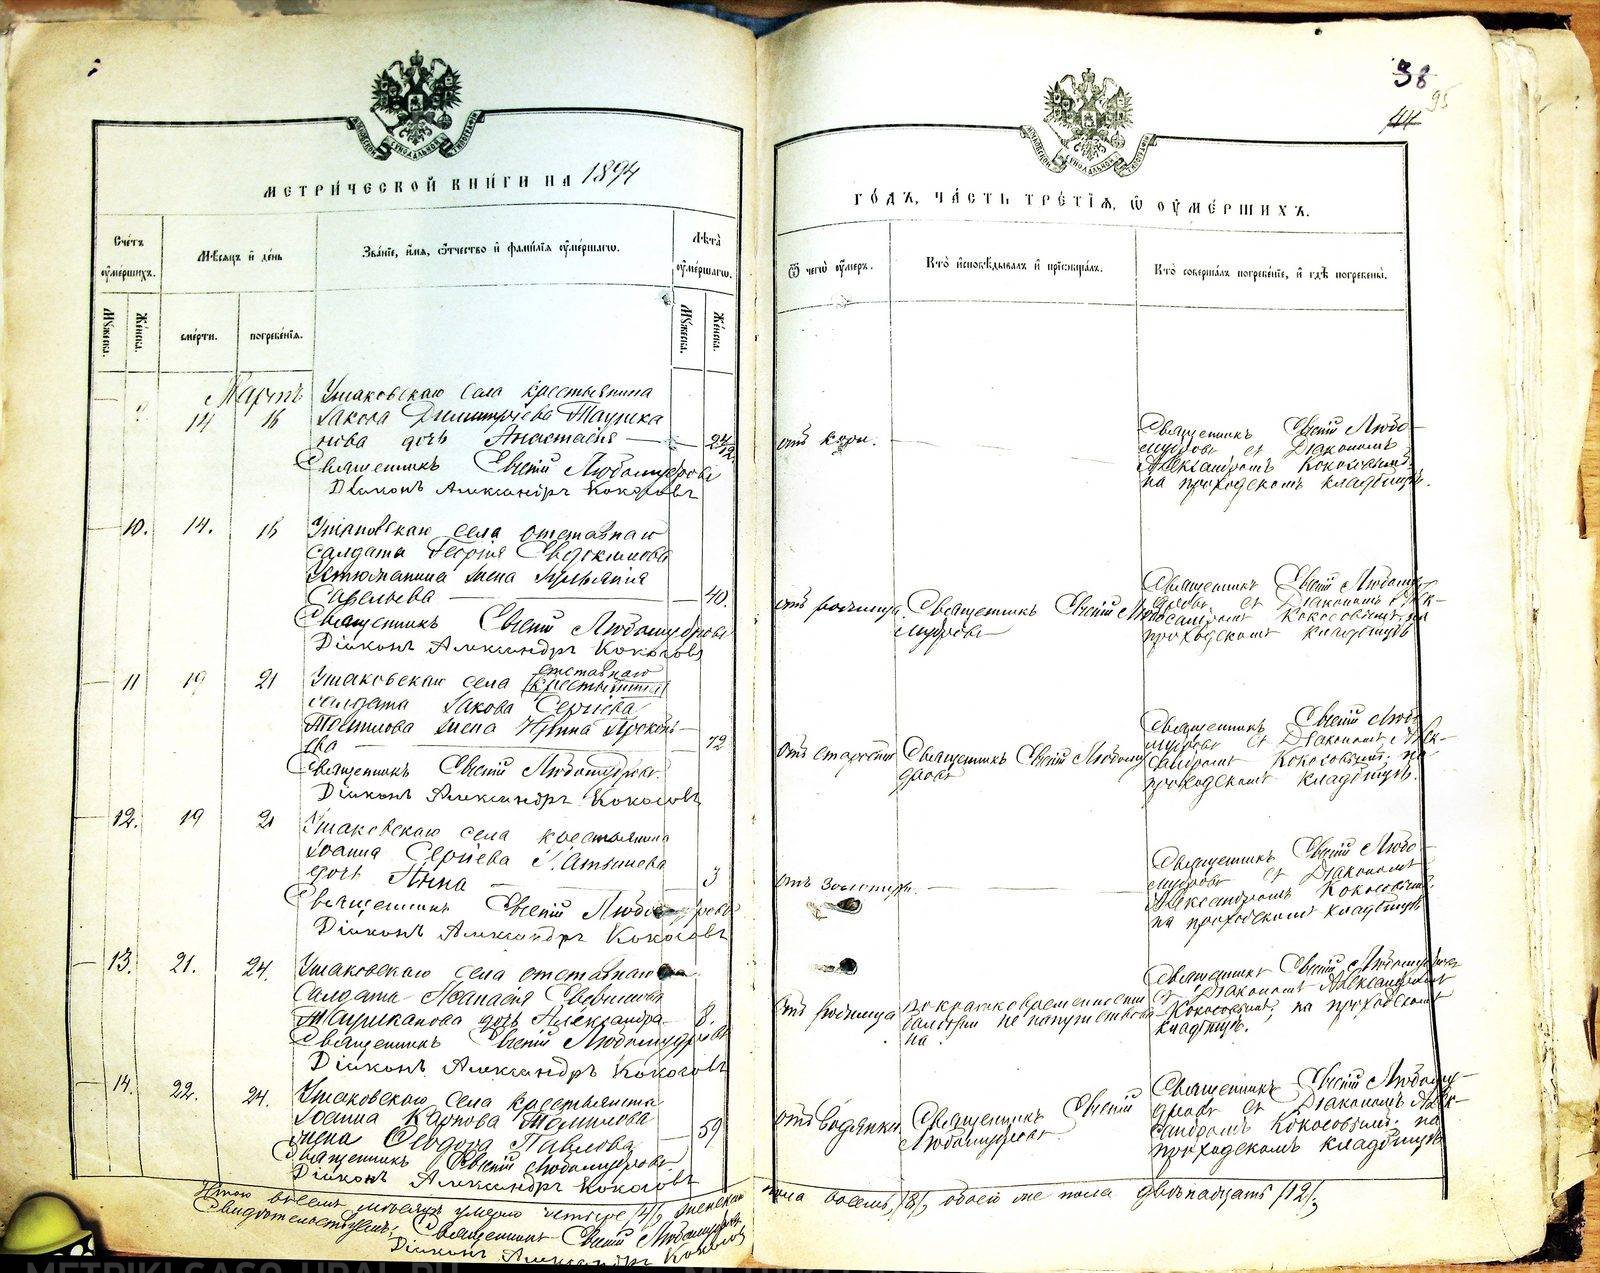 38
95
44
МЕТРИ́ЧЕСКОЙ КНИ́ГИ НА 1894
ГО́ДЪ, ЧА́СТЬ ТРЕ́ТІѦ, Ѽ ОУ҆МЕ́РШИХЪ.
Сче́тъ оу҆ме́ршихъ.
Мѣ́сѧцъ и҆ де́нь
Зва́ніе, и҆́мѧ, ѻ҆́тчество и҆ фами́лїѧ оу҆ме́ршагѡ.
Лѣ́та оу҆ме́ршагѡ.
Ѿ чегѡ̀ оу҆́меръ.
Кто̀ и҆сповѣ́дывалъ и҆ прїѡбща́лъ.
Кто̀ соверша́лъ погребе́нїе, и҆ гдѣ̀ погребены̀.
Му́жеска.
Же́нска.
сме́рти.
погребе́нїѧ.
Му́жеска.
Же́нска.
Мартъ
Ушаковскаго села крестьянина
9 14 16 Іакова Димитріева
дочь Анастасія
отъ кори.
Священникъ Евгеній Любомудровъ
Діаконъ Александръ Кокосовъ
Священникъ Евгеній Любо-
мудровъ съ Діакономъ
Александромъ Кокосовымъ
на приходскомъ кладбищѣ.
10. 14. 16 Ушаковскаго села отставнаго
солдата Георгія Евдокимова
Устюжанина жена
Савельева 40.
Священникъ Евгеній Любомудровъ
Діаконъ Александръ Кокосовъ
отъ родимца Священникъ Евгеній Любо-
мудровъ
Священникъ Евгеній Любому-
дровъ съ Діакономъ Алек-
сандромъ Кокосовымъ на
приходскомъ кладбищѣ
11 19 21 Ушаковскаго села отставнаго
солдата Іакова Сергіева
жена Ирина Прокопь-
ева 72
Священникъ Евгеній Любомудровъ.
Діаконъ Александръ Кокосовъ
отъ старости Священникъ Евгеній Любому-
дровъ
Священникъ Евгеній Любо-
мудровъ съ Діакономъ Алек-
сандромъ Кокосовымъ; на
приходскомъ кладбищѣ.
12. 19 21 Ушаковскаго села крестьянина
Іоанна Сергіева
дочь Анна 3
Священникъ Евгеній Любомудровъ
Діаконъ Александръ Кокосовъ
отъ золотухи.
Священникъ Евгеній Любо-
мудровъ съ Діакономъ
Александромъ Кокосовымъ.
на приходскомъ кладбищѣ
13. 21. 24. Ушаковскаго села отставнаго
солдата Аѳанасія
дочь Александра 8.
Священникъ Евгеній Любомудровъ
Діаконъ Александръ Кокосовъ
отъ родимца по кратковременности
болѣзни не напутствова-
на.
Священникъ Евгеній Любомудровъ
съ Діакономъ Александромъ
Кокосовымъ, на приходскомъ
кладбищѣ.
14. 22. 24. Ушаковскаго села крестьянина
Іоанна Карпова
жена Ѳеодора Павлова 59
Священникъ Евгеній Любомудровъ.
Діаконъ Александръ Кокосовъ
отъ водянки. Священникъ Евгеній
Любомудровъ.
Священникъ Евгеній Любому-
дровъ съ Діакономъ Алек-
сандромъ Кокосовымъ; на
приходскомъ кладбищѣ
умерло четыре /4/, женскаго пола восемь, /8/, обоего же пола двѣнадцать /12/,
Свидѣтельствуемъ: Священникъ Евгеній Любомудровъ
Діаконъ Александръ Кокосовъ